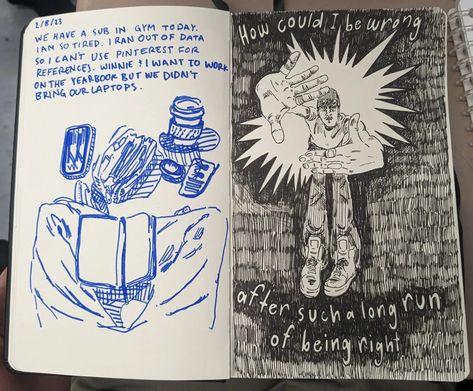 2/8/23
WE HAVE A SUB IN GYM TODAY.
I AM SO TIRED. I RAN OUT OF DATA
SO I CAN'T USE PINTEREST FOR
REFERENCES. WINNIE & I WANT TO WORK
ON THE YEARBOOK BUT WE DIDN'T
BRING OUR LAPTOPS.
How could I be wrong
after such a long run
of being right